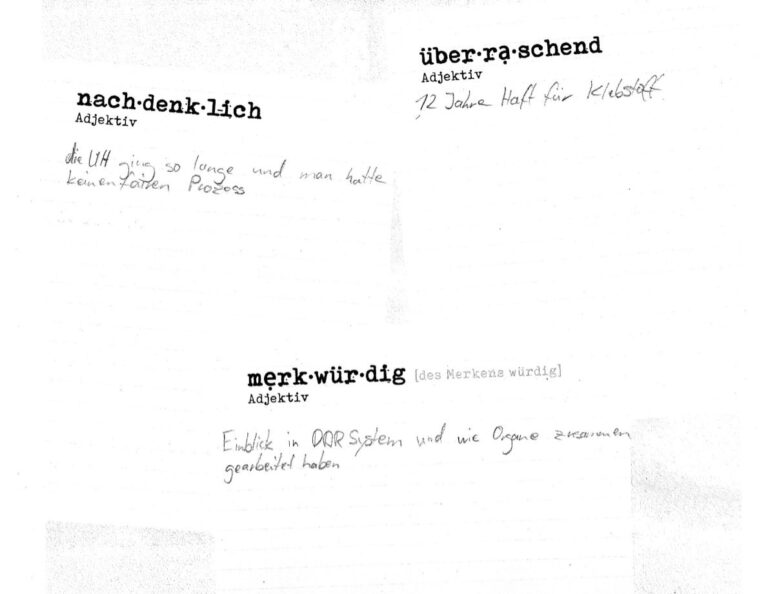 nach·denk·lich
Adjektiv
die UH ging so lange und man hatte
keinen fairen Prozess
über·rạ·schend
Adjektiv
12 Jahre Haft für Klebstoff
mẹrk·wür·dig [des Merkens würdig]
Adjektiv
Einblick in DDR System und wie Organe zusammen
gearbeitet haben